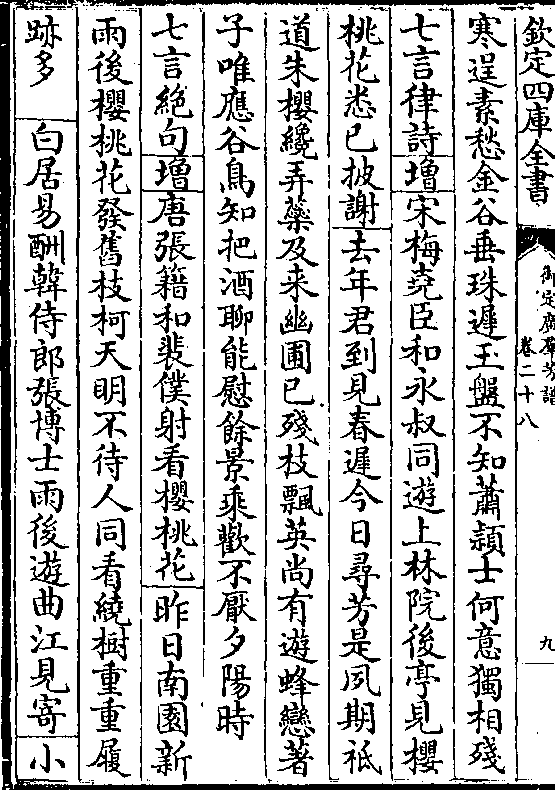 欽定四庫全書
御定廣羣芳譜
卷二十八
九
寒逞素愁金谷垂珠遲玉盤不知蕭頴士何意獨相殘
七言律詩增宋梅堯臣和永叔同遊上林院後亭見櫻
桃花悉已披謝去年君到見春遲今日尋芳是夙期祗
道朱櫻纔弄蘂及來幽圃已殘枝飄英尚有遊蜂戀著
子唯應谷鳥知把酒聊能慰餘景乘歡不厭夕陽時
七言絶句增唐張籍和裴僕射看櫻桃花昨日南園新
雨後櫻桃花發舊枝柯天明不待人同看繞樹重重履
跡多 白居易酬韓侍郎張博士雨後遊曲江見寄小